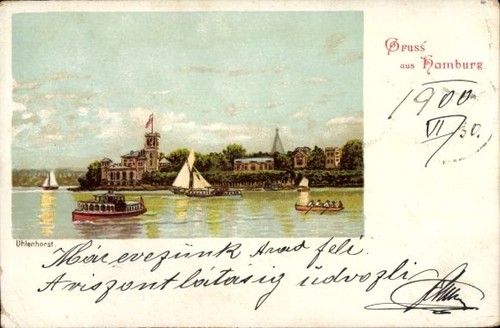 Gruss
aus Hamburg.
1900
VI/30.
Uhlenhorst.
Már evezünk Arad felé.
A viszontlátásig üdvözli